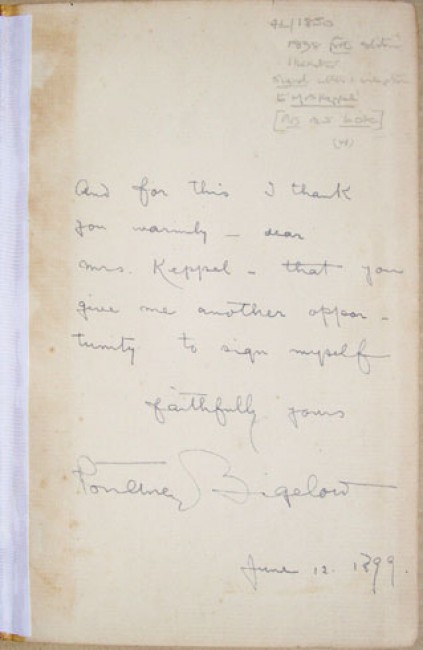 42/1850
1898 first edition
Signed with inscription
to Mrs Keppel
And for this I thank
you warmly — dear
Mrs. Keppel - that you
give me another oppor -
tunity to sign myself
faithfully yours
Poultney Bigelow
June 12. 1899.